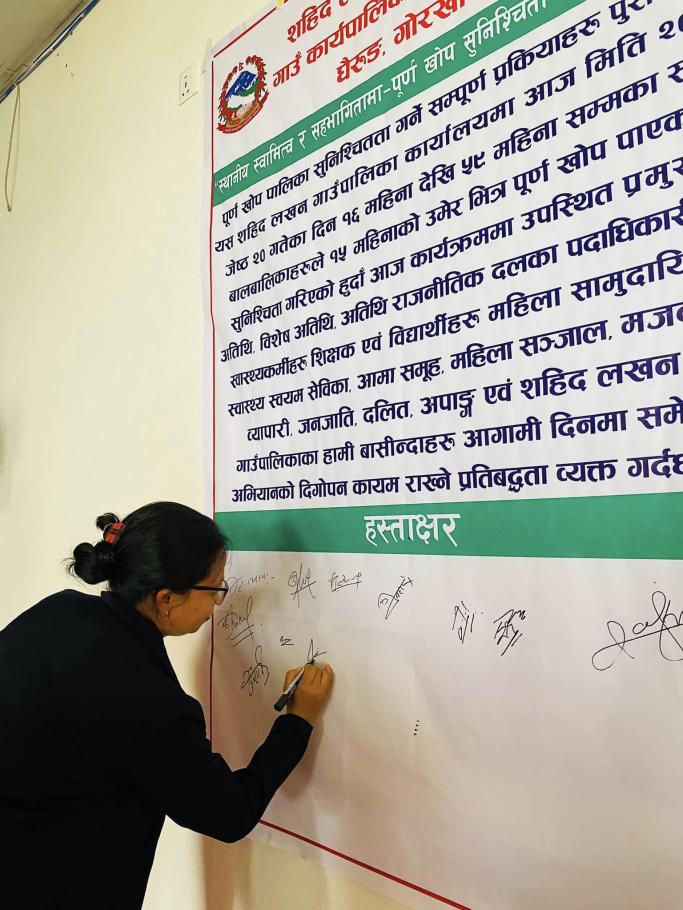 शहिद ल
गाउँ कार्यपालिका
घैरुङ, गोरखा
"स्थानीय स्वामित्व र सहभागितामा-पूर्ण खोप सुनिश्चितता
पूर्ण खोप पालिका सुनिश्चितता गर्ने सम्पूर्ण प्रकियाहरू पुरा
यस शहिद लखन गाउँपालिका कार्यालयमा आज मिति २०
जेष्ठ २० गतेका दिन १६ महिना देखि ५९ महिना सम्मका स
बालबालिकाहरूले १५ महिनाको उमेर भित्र पूर्ण खोप पाएक
सुनिश्चिता गरिएको हुदाँ आज कार्यक्रममा उपस्थित प्रमुख
अतिथि, विशेष अतिथि, अतिथि राजनीतिक दलका पदाधिकारी
स्वास्थ्यकर्मीहरू शिक्षक एवं विद्यार्थीहरू महिला सामुदायि
स्वास्थ्य स्वयम सेविका, आमा समूह, महिला सञ्जाल, मजद
व्यापारी, जनजाति, दलित, अपाङ्ग एवं शहिद लखन
गाउँपालिकाका हामी बासीन्दाहरू आगामी दिनमा समे
अभियानको दिगोपन कायम राख्ने प्रतिबद्धता व्यक्त गर्दछ
हस्ताक्षर